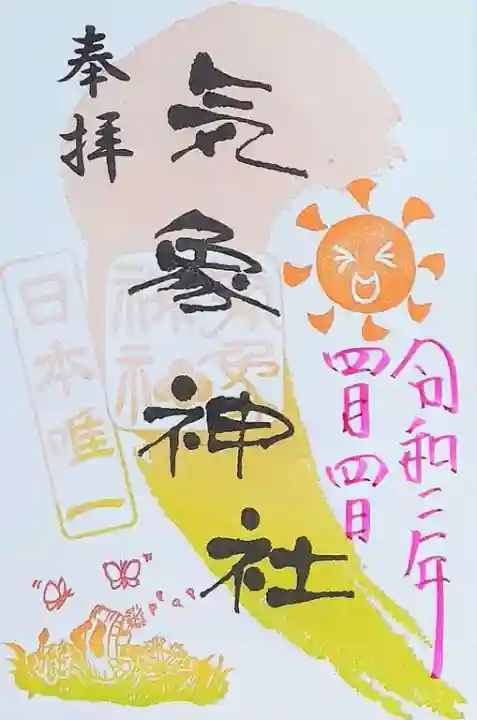 奉拝
気象神社
令和二年
四月四日
日本唯一
気象
神社